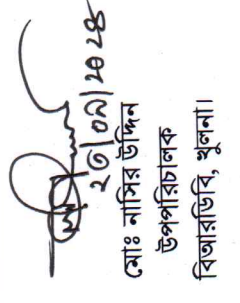 ২৩/০৯/২০২৪
মোঃ নাসির উদ্দিন
উপপরিচালক
বিআরডিবি, খুলনা।